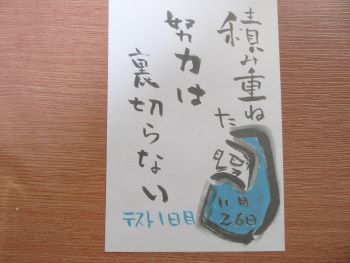 積み重ねた
努力は
裏切らない
テスト1日目
11月
26日